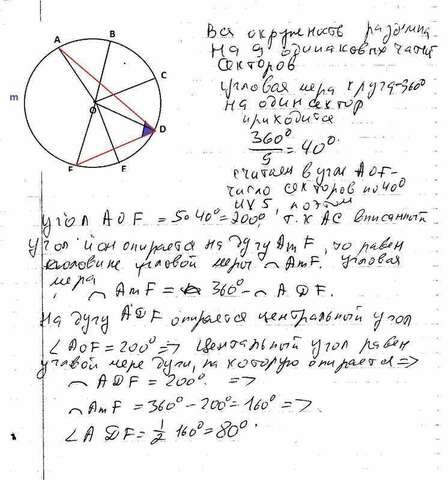 A
B
C
D
E
F
O
m
Вся окружность разбита
на 9 одинаковых частей
секторов
угловая мера круга-360°
на один сектор
приходится
360°/9 = 40°.
считаем в угле AOF-
число секторов по 40°
их 5, поэтому
угол AOF = 5·40° = 200°, т.к AC вписанный
угол и он опирается на дугу AmF, то равен
половине угловой меры ◠AmF. угловая
мера
◠AmF = 360° - ◠ADF.
На дугу ADF опирается центральный угол
∠AOF = 200° => центальный угол равен
угловой мере дуги, на которую опирается =>
◠ADF = 200° =>
◠AmF = 360° - 200° = 160° =>
∠ADF = 1/2 160° = 80°.